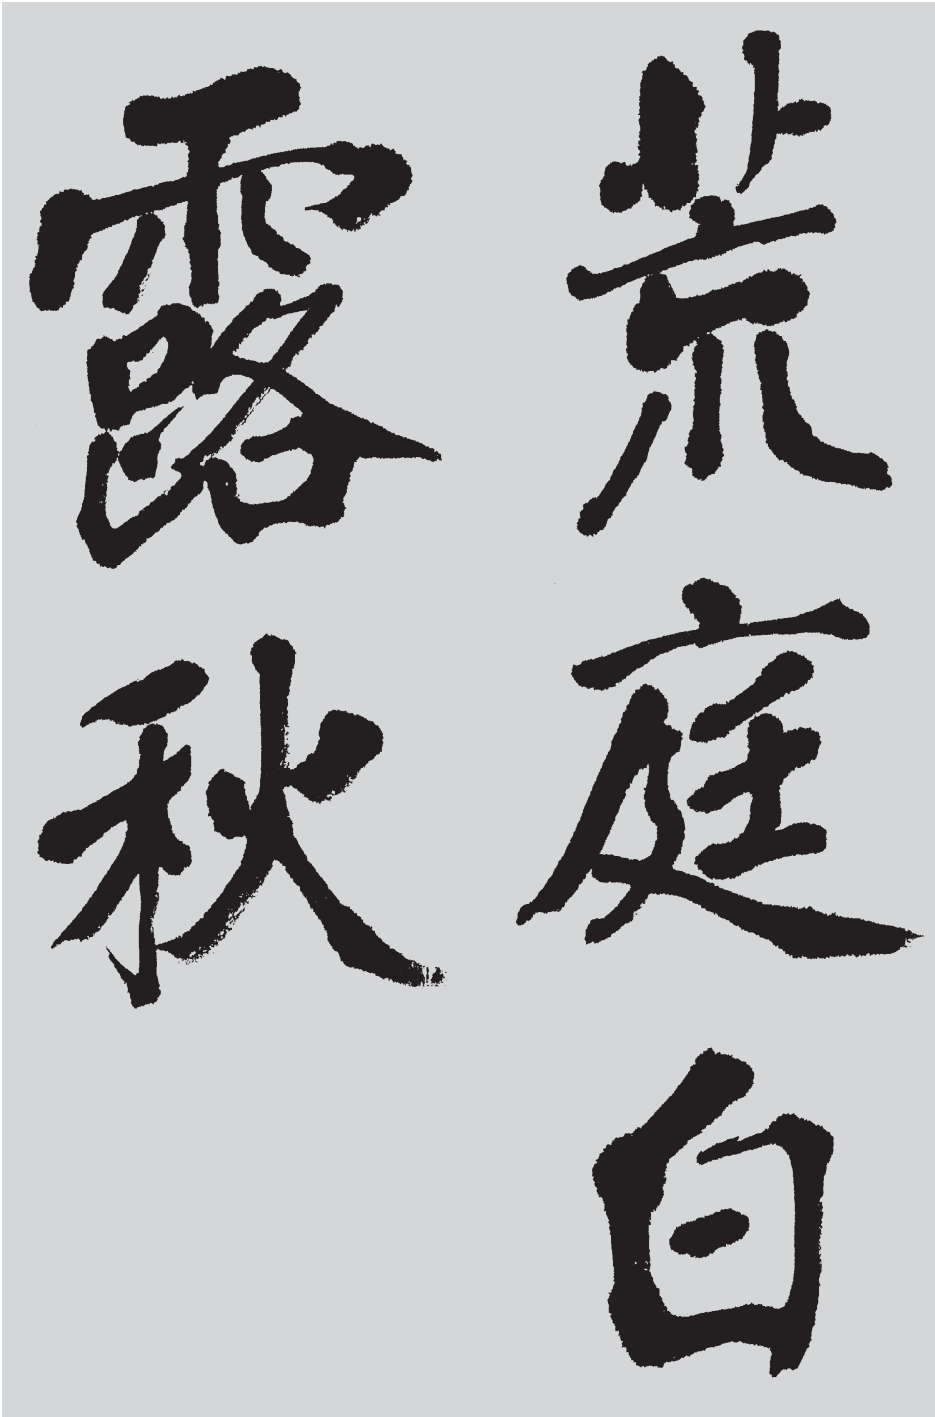 荒庭白
露秋